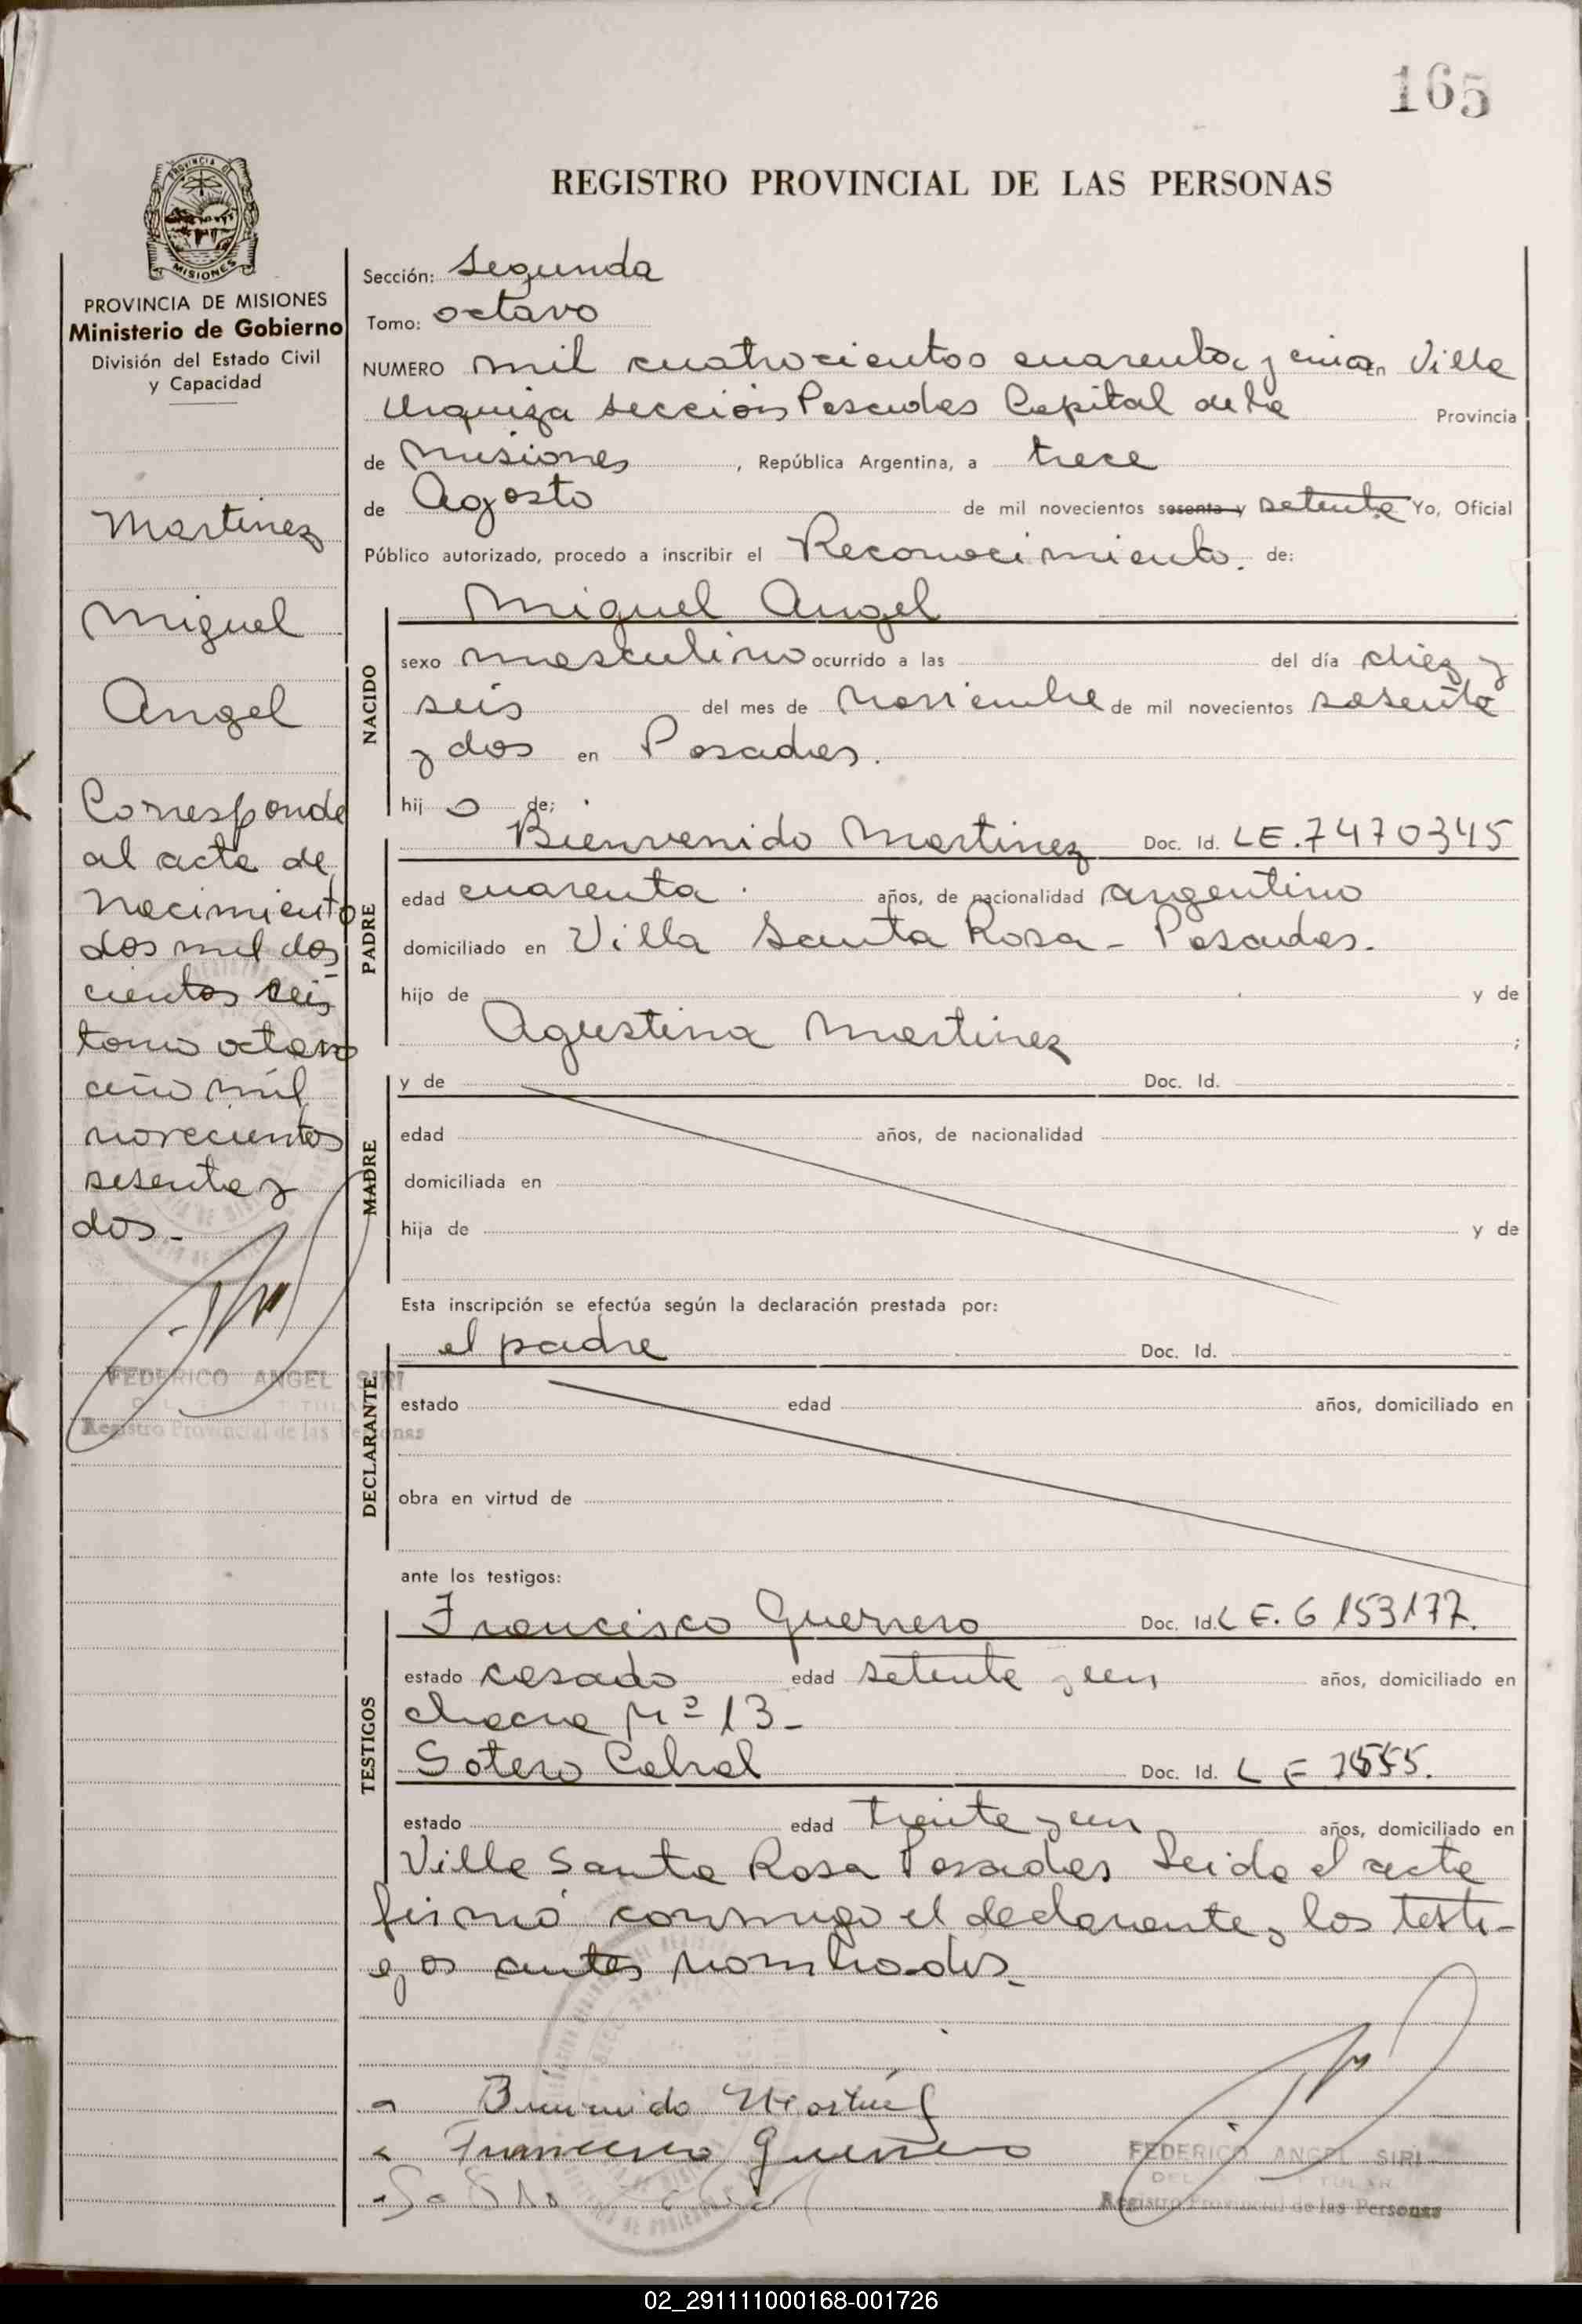 165
REGISTRO PROVINCIAL DE LAS PERSONAS
PROVINCIA DE MISIONES
Ministerio de Gobierno
División del Estado Civil
y Capacidad
Martinez
Miguel
Angel
Corresponde
al acta de
Nacimiento
dos mil dos
cientos seis
tomo octavo
año mil
novecientos
sesenta y
dos -
FEDERICO ANGEL SIRI
Registro Provincial de las Personas
Sección: Segunda
Tomo: octavo
NUMERO mil cuatrocientos cuarenta y en Villa
Urquiza sección Posadas Capital de la Provincia
de Misiones, República Argentina, a trece
de Agosto de mil novecientos sesenta y setenta Yo, Oficial
Público autorizado, procedo a inscribir el Reconocimiento. de:
NACIDO
Miguel Angel
sexo masculino ocurrido a las del día diez y
seis del mes de Noviembre de mil novecientos sesenta
y dos en Posadas.
hij o de:
PADRE
Bienvenido Martinez Doc. Id. LE.7470345
edad cuarenta años, de nacionalidad argentino
domiciliado en Villa Santa Rosa - Posadas.
hijo de y de
Agustina Martinez ;
MADRE
y de Doc. Id.
edad años, de nacionalidad
domiciliada en
hija de y de
Esta inscripción se efectúa según la declaración prestada por:
DECLARANTE
el padre Doc. Id.
estado edad años, domiciliado en
obra en virtud de
ante los testigos:
TESTIGOS
Francisco Guerrero Doc. Id. LE. 6153177.
estado casado edad setenta y un años, domiciliado en
chacra Nº 13 -
Sotero Cabral Doc. Id. LE
estado edad treinta y un años, domiciliado en
Villa Santa Rosa Posadas Leida el acta
firmó conmigo el declarante y los testi-
gos antes nombrados.
Bienvenido Martinez
Francisco Guerrero
FEDERICO ANGEL SIRI
Registro Provincial de las Personas
02_291111000168-001726